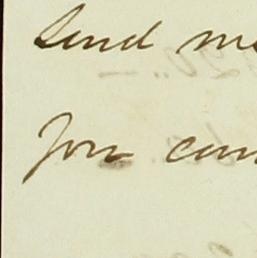 Send me
You can